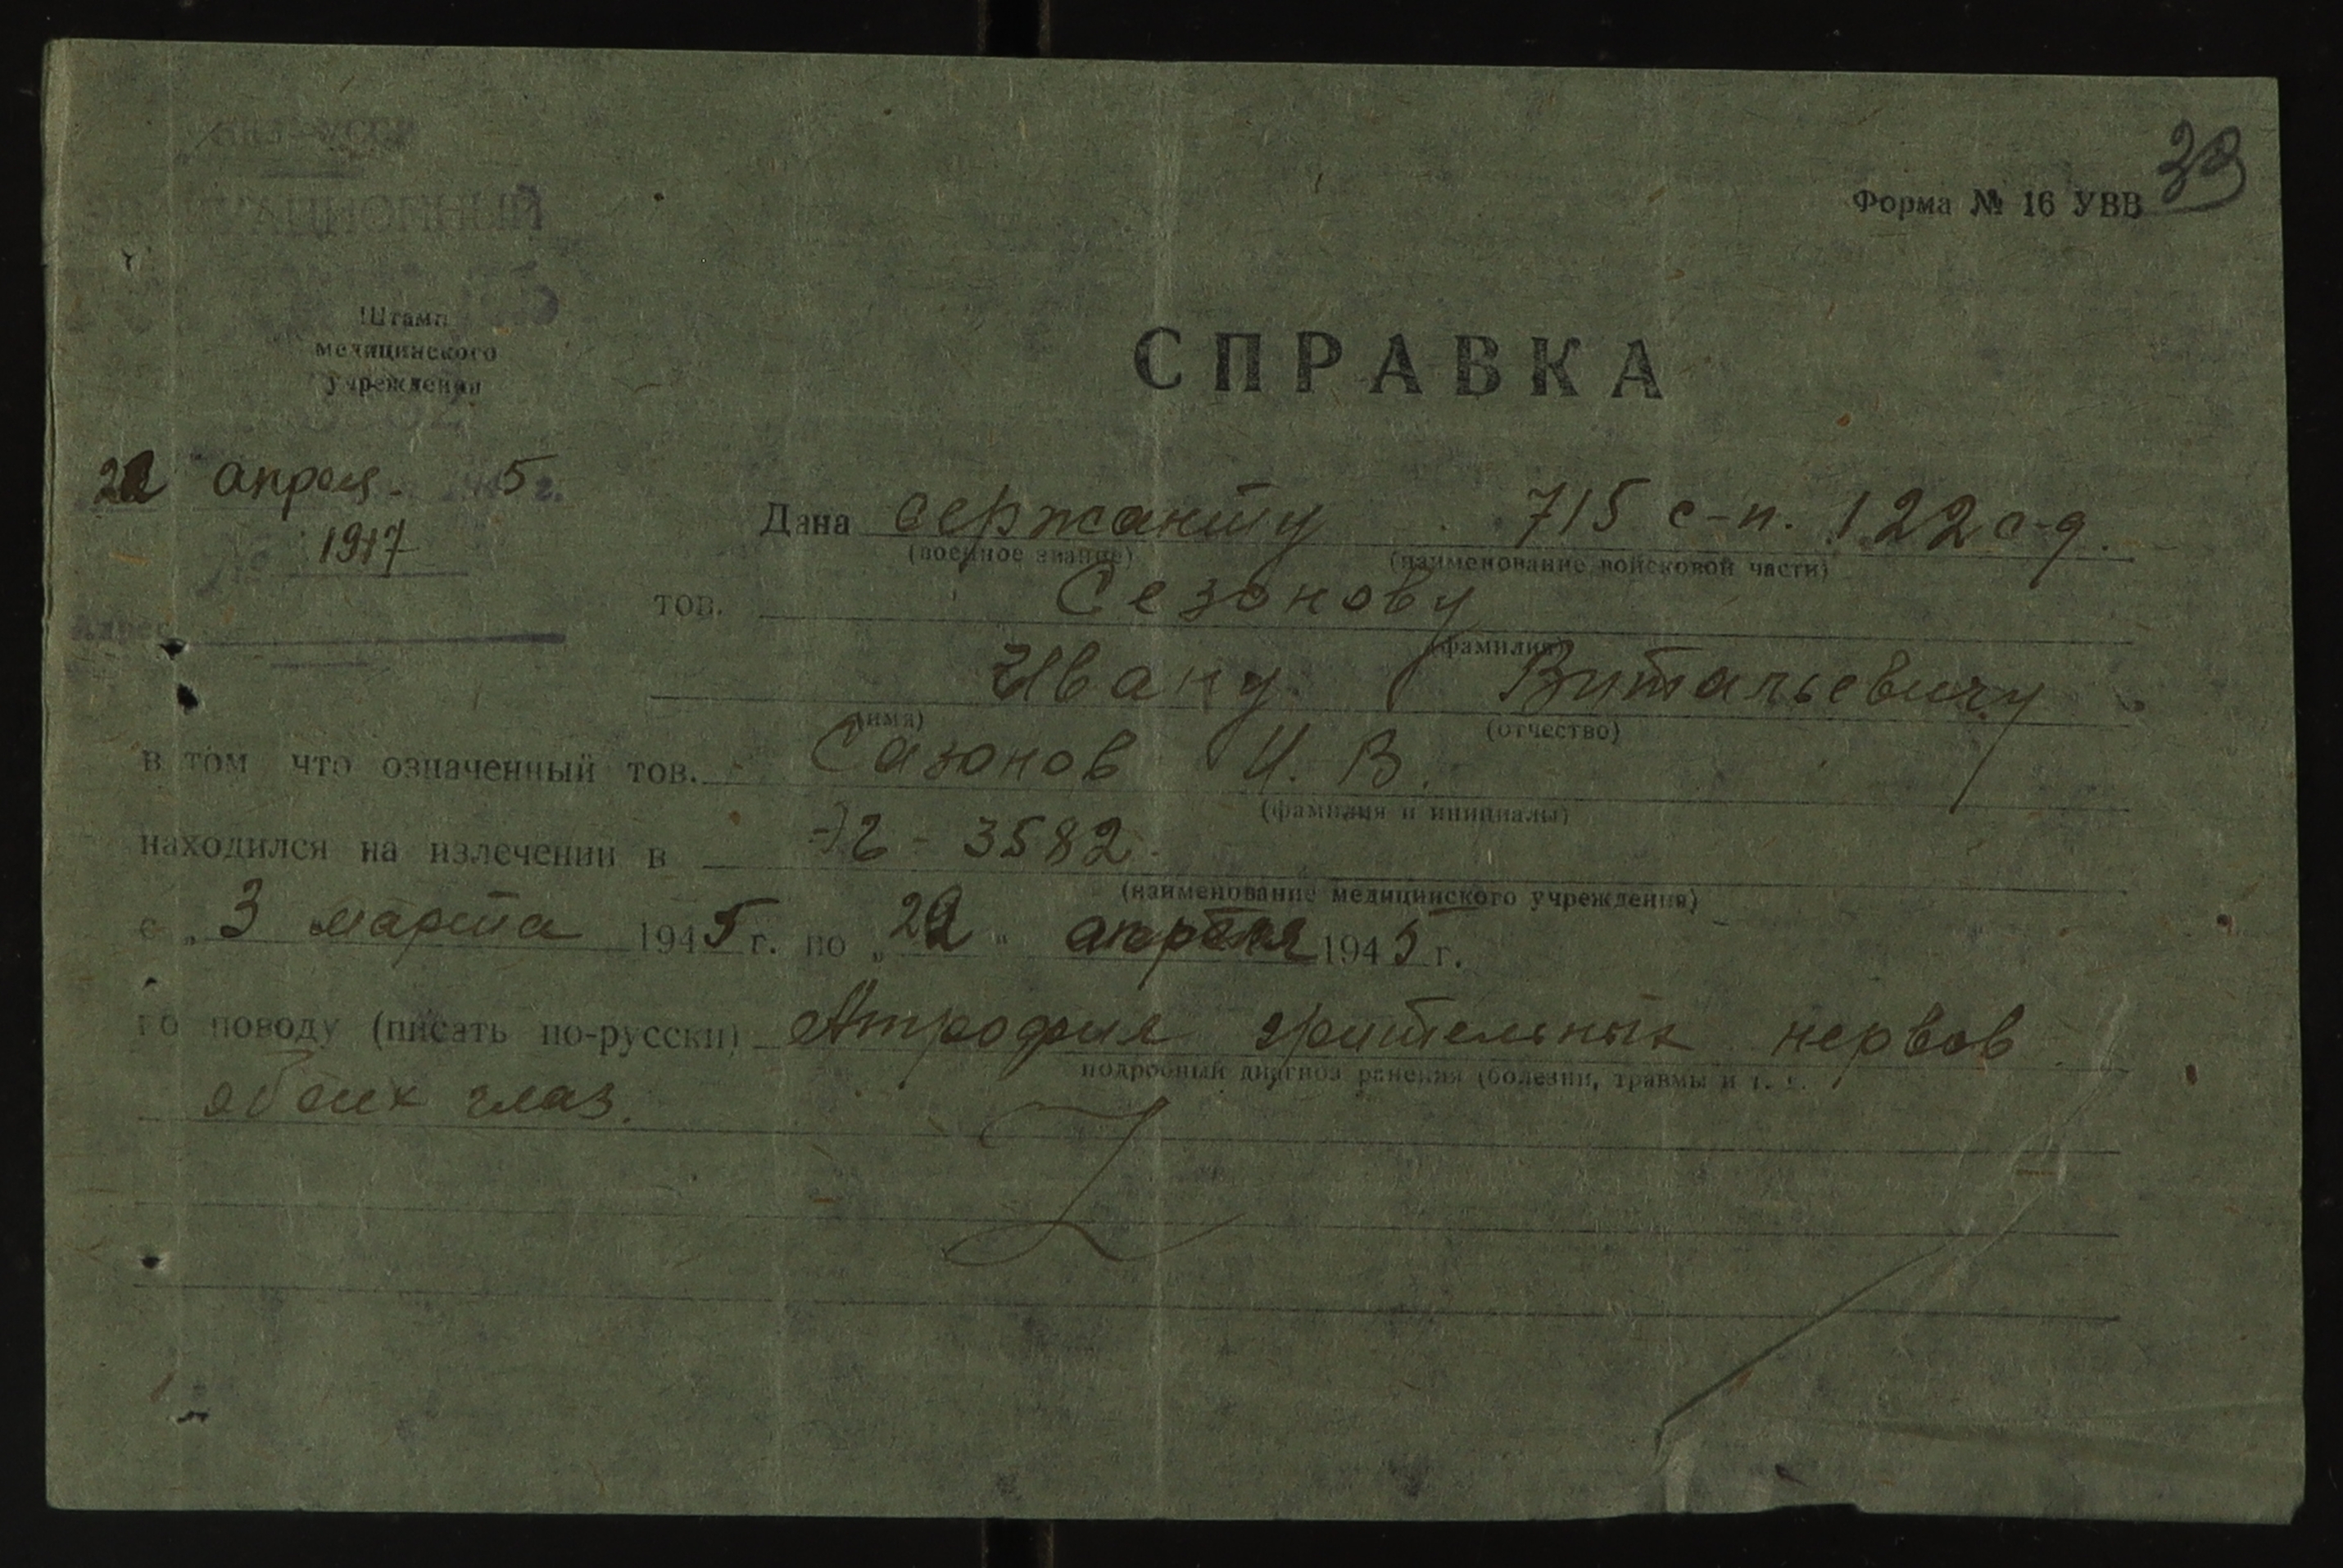 33
Форма № 16 УВВ
Штамп
медицинского
учреждения
СПРАВКА
22 апреля 1945 г.
№ 1917
Адрес
Дана сержанту 715 с-п. 122 с-д.
(военное звание) (наименование войсковой части)
тов. Сезонову
(фамилия)
Ивану Витальевичу
(имя) (отчество)
в том что означенный тов. Сазонов И. В.
(фамилия и инициалы)
находился на излечении в ЭГ-3582
(наименование медицинского учреждения)
с „3 марта 1945 г. по „22" апреля 1945 г.
по поводу (писать по-русски) Атрофия зрительных нервов
подробный диагноз ранения (болезни, травмы и т. д.
обоих глаз.